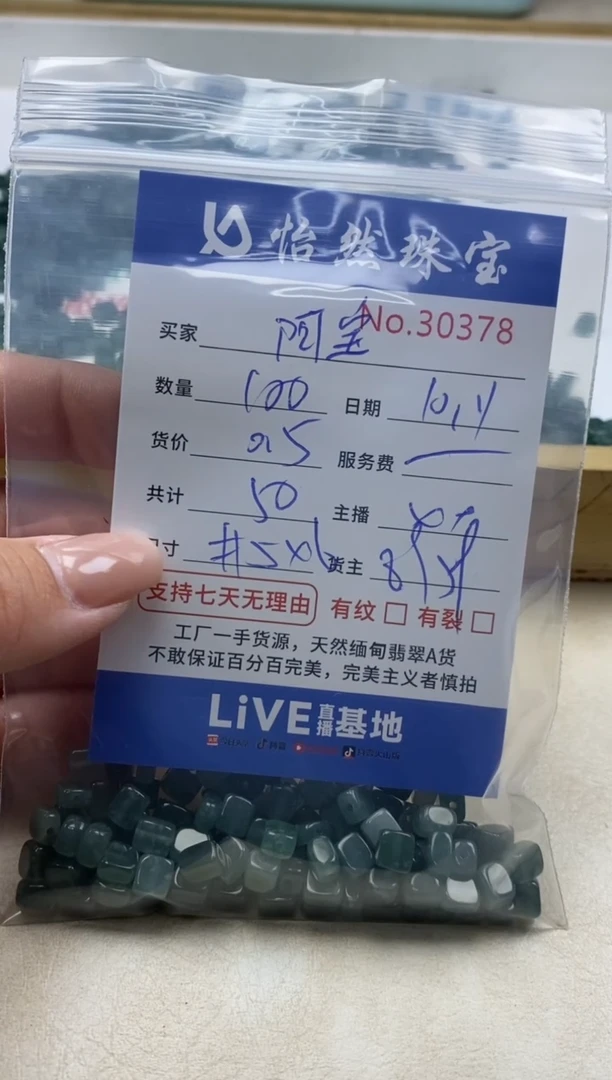 怡然珠宝
No.30378
买家 阿宝
数量 100 日期
货价 0.5 服务费 —
共计 50 主播
寸 货主
支持七天无理由 有纹 有裂
工厂一手货源，天然缅甸翡翠A货
不敢保证百分百完美，完美主义者慎拍
LiVE直播基地